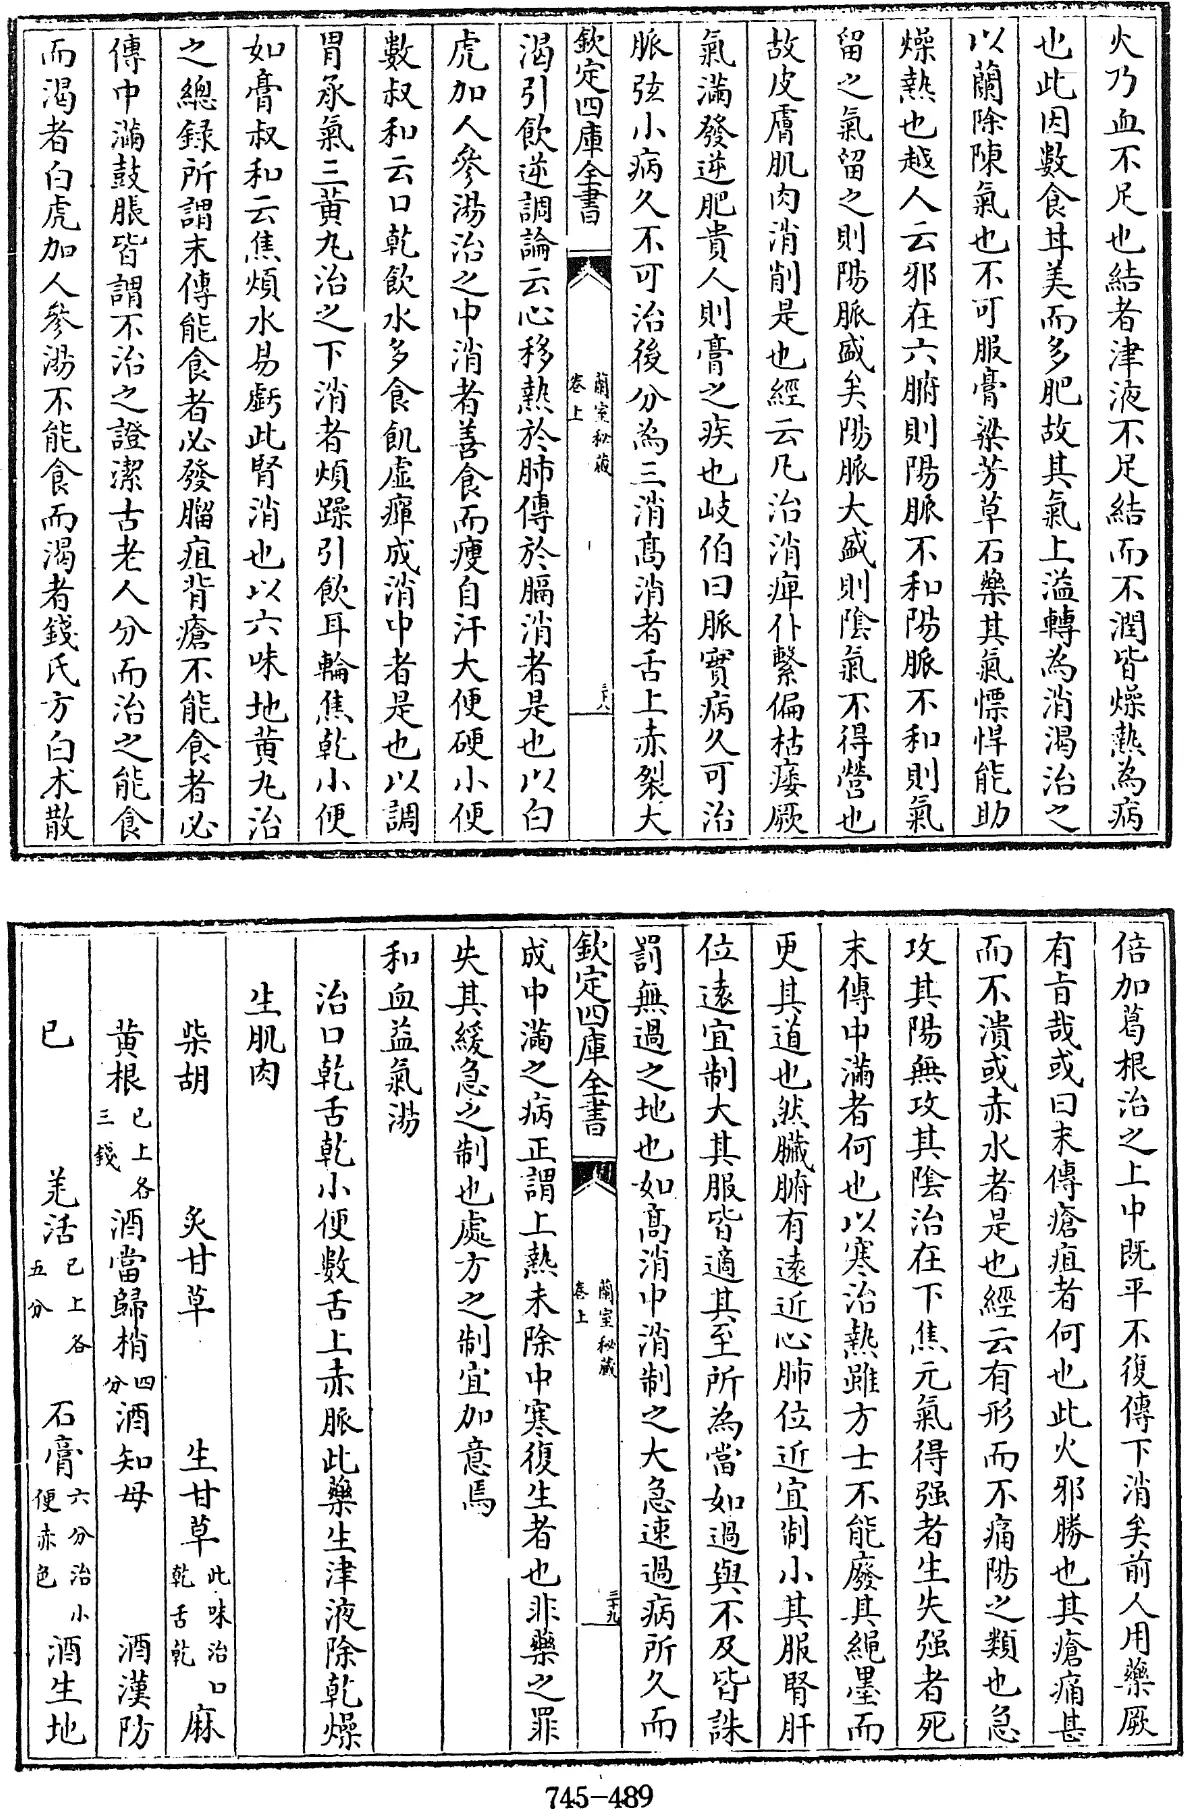 火乃血不足也結者津液不足結而不潤皆燥熱為病
也此因數食甘美而多肥故其氣上溢轉為消渴治之
以蘭除陳氣也不可服膏粱芳草石藥其氣慓悍能助
燥熱也越人云邪在六腑則陽脈不和陽脈不和則氣
留之氣留之則陽脈盛矣陽脈大盛則陰氣不得營也
故皮膚肌肉消削是也經云凡治消癉仆擊偏枯痿厥
氣滿發逆肥貴人則膏之疾也岐伯曰脈實病久可治
脈弦小病久不可治後分為三消高消者舌上赤裂大
欽定四庫全書
蘭室秘藏
卷上
三十八
渴引飲逆調論云心移熱於肺傳於膈消者是也以白
虎加人參湯治之中消者善食而瘦自汗大便硬小便
數叔和云口乾飲水多食飢虛癉成消中者是也以調
胃承氣三黃丸治之下消者煩躁引飲耳輪焦乾小便
如膏叔和云焦煩水易虧此腎消也以六味地黃丸治
之總錄所謂末傳能食者必發腦疽背瘡不能食者必
傳中滿鼓脹皆謂不治之證潔古老人分而治之能食
而渴者白虎加人參湯不能食而渴者錢氏方白朮散
倍加葛根治之上中既平不復傳下消矣前人用藥厥
有旨哉或曰末傳瘡疽者何也此火邪勝也其瘡痛甚
而不潰或赤水者是也經云有形而不痛陽之類也急
攻其陽無攻其陰治在下焦元氣得强者生失强者死
末傳中滿者何也以寒治熱雖方士不能廢其繩墨而
更其道也然臟腑有遠近心肺位近宜制小其服腎肝
位遠宜制大其服皆適其至所為當如過與不及皆誅
罰無過之地也如高消中消制之大急速過病所久而
欽定四庫全書
蘭室秘藏
卷上
三十九
成中滿之病正謂上熱未除中寒復生者也非藥之罪
失其緩急之制也處方之制宜加意焉
和血益氣湯
治口乾舌乾小便數舌上赤脈此藥生津液除乾燥
生肌肉
柴胡 炙甘草 生甘草此味治口乾舌乾 麻
黄根已上各三錢 酒當歸梢四分 酒知母 酒漢防
已 羌活已上各五分 石膏六分治小便赤色 酒生地
745-489